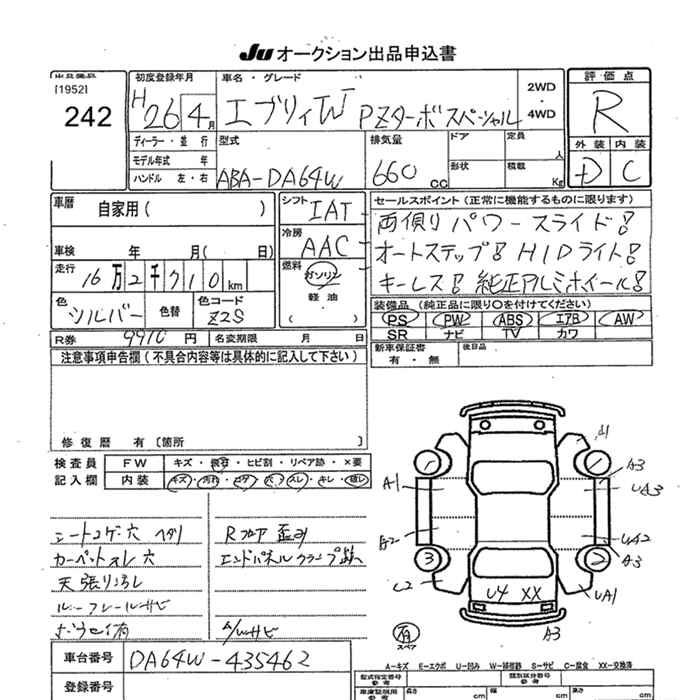 Ju オークション出品申込書
[1952]
242
初度登録年月
H26 4月
車名・グレード
エブリィW PZターボスペシャル
2WD
・
4WD
評価点
R
ディーラー・並行
モデル年式 年
ハンドル 左・右
型式
ABA-DA64W
排気量
660 cc
ドア
定員
人
形状
積載
Kg
外装 内装
D C
車歴
自家用( )
車検 年 月( 日)
走行
16万2千710km
色
シルバー
色替
色コード
Z2S
シフト
IAT
冷房
AAC
燃料
ガソリン
軽油
( )
セールスポイント(正常に機能するものに限ります)
両側パワースライド!
オートステップ! HIDライト!
キーレス! 純正アルミホイール!
装備品(純正品に限り○を付けてください)
PS PW ABS エアB AW
SR ナビ TV カワ
R券 9910円
名変期限 月 日
新車保証書
有・無
後日品
注意事項申告欄(不具合内容等は具体的に記入して下さい)
修復歴 有〔箇所 〕
検査員 FW キズ・飛石・ヒビ割・リペア跡・×要
記入欄 内装 キズ・汚れ・コゲ・穴・スレ・キレ・破レ
シートコゲ穴 ヘタリ
カーペットスレ穴
天張り汚レ
ルーフレールサビ
Rフロア歪み
エンドパネルクランプ跡
A/Wサビ
A1
A3
A1
UA3
A2
UA2
A3
1
3
2
C2
U4 XX
UA1
A3
有
スペア
車台番号 DA64W-435462
登録番号
A-キズ E-エクボ U-凹み W-補修跡 S-サビ C-腐食 XX-交換済
型式指定番号
参考
類別区分番号
参考
車庫証明用
参考
長さ cm
幅 cm
高さ cm